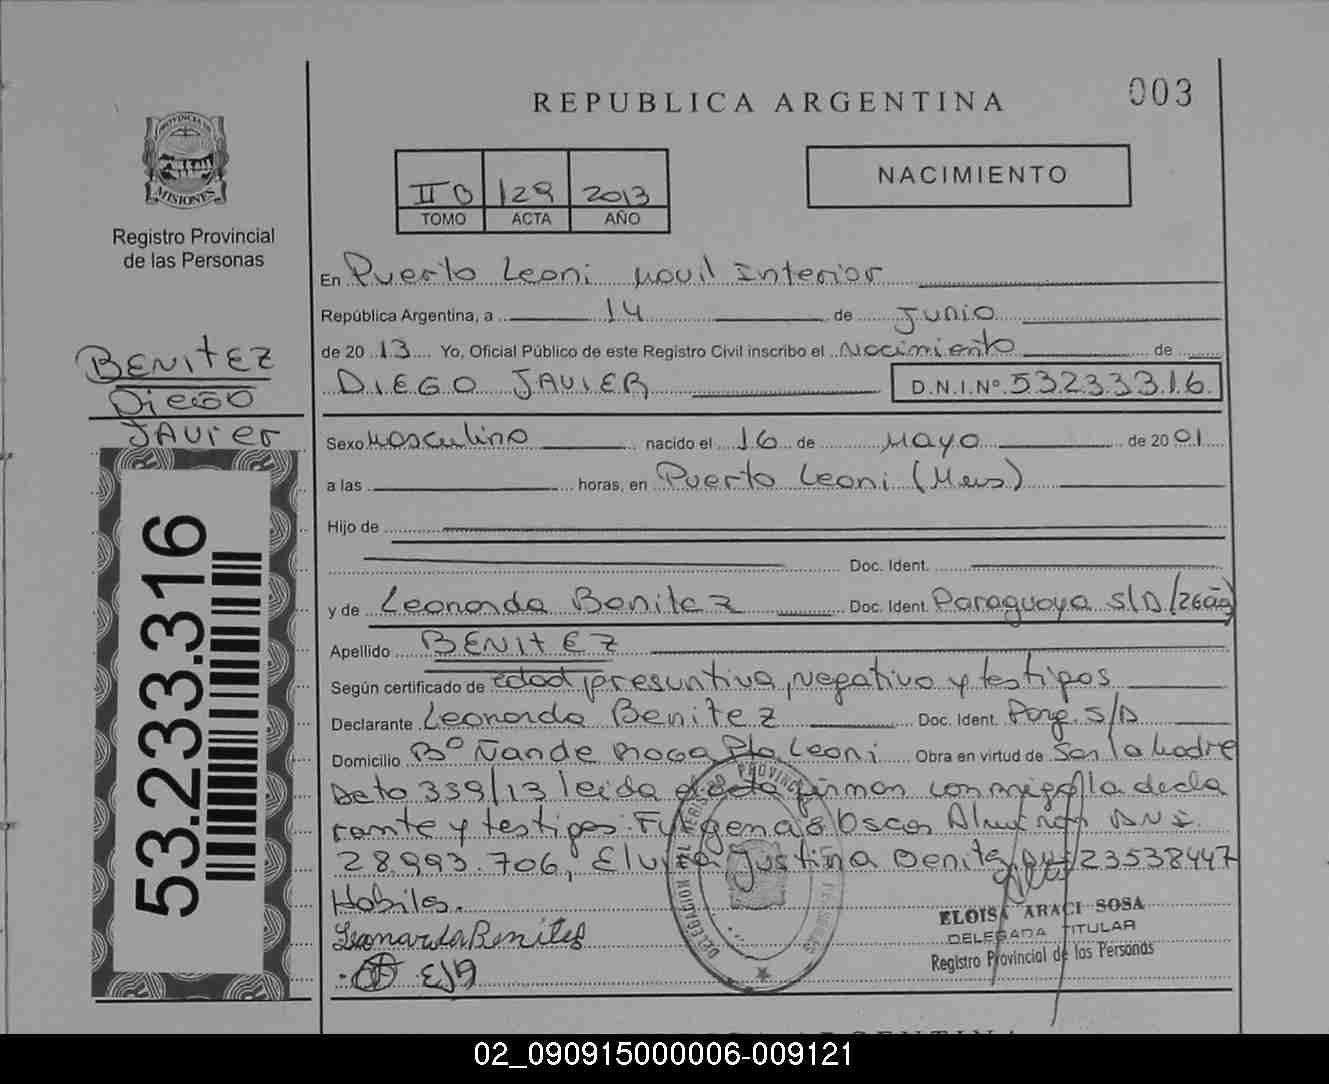 REPUBLICA ARGENTINA
003
PROVINCIA DE
MISIONES
Registro Provincial
de las Personas
II B 129 2013
TOMO ACTA AÑO
NACIMIENTO
En Puerto Leoni movil Interior
República Argentina, a 14 de Junio
de 2013 Yo, Oficial Público de este Registro Civil inscribo el Nacimiento de
DIEGO JAVIER D.N.I.Nº 53233316
BENITEZ
Diego
Javier
Sexo Masculino nacido el 16 de Mayo de 2001
a las horas, en Puerto Leoni (Mnes)
Hijo de
Doc. Ident.
y de Leonarda Benitez Doc. Ident. Paraguaya S/D
Apellido BENITEZ
Según certificado de edad presuntiva, negativo y testigos
Declarante Leonarda Benitez Doc. Ident. Parg. S/D
Domicilio Bº Ñande Roga Pto Leoni Obra en virtud de Ser la Madre
Dcto 339/13 leida el acta firman conmigo la decla
rante y testigos: Oscar DNI
28.993.706, Justina Benitez 23538447
Habiles.
Leonarda Benitez
EJB
53.233.316
ELOISA ARACI SOSA
DELEGADA TITULAR
Registro Provincial de las Personas
02_090915000006-009121